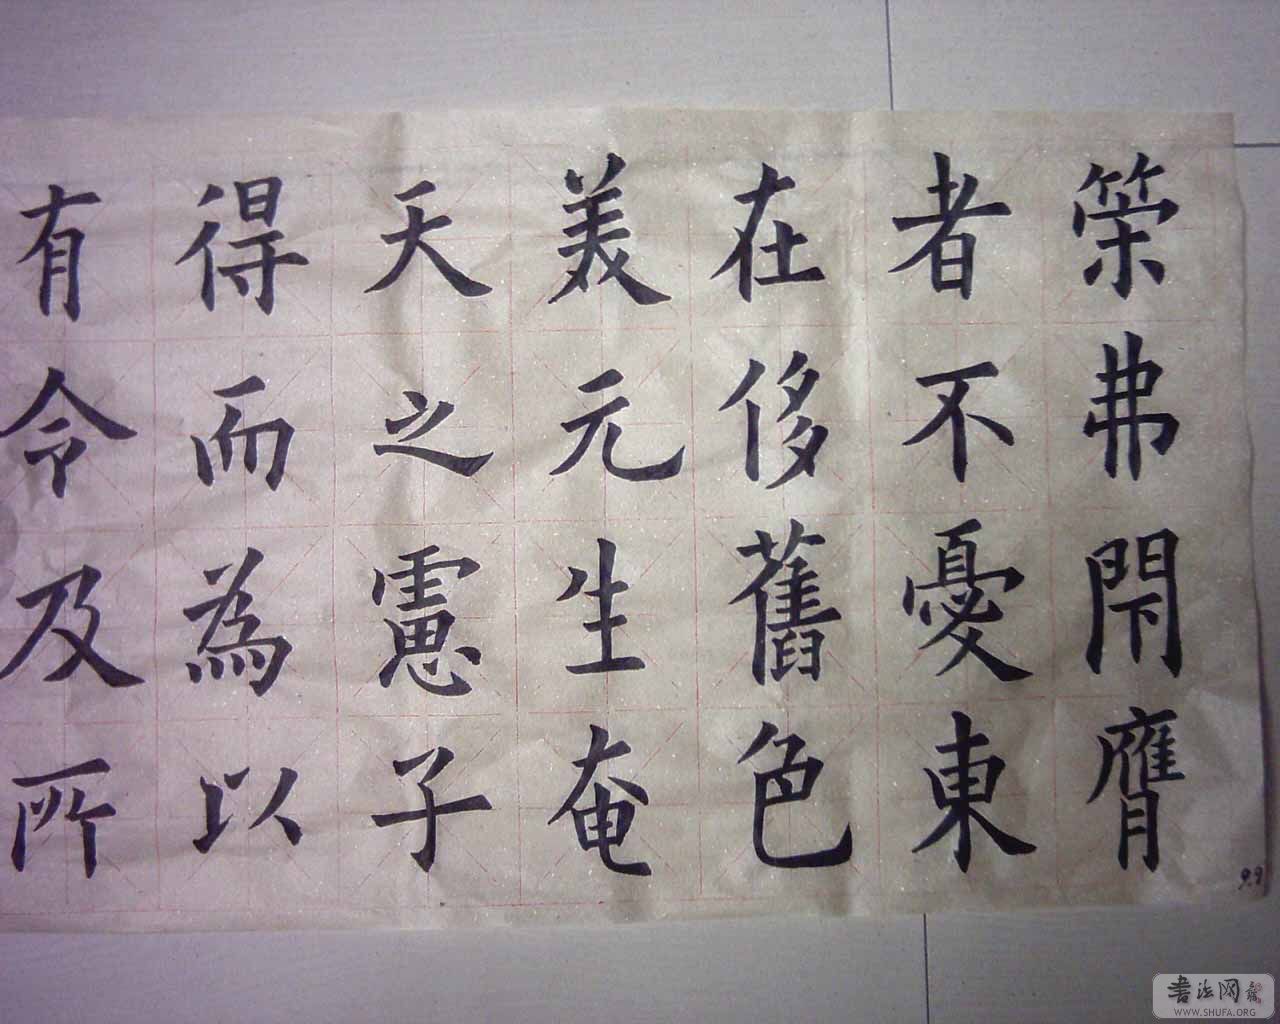 筞弗閇膺
者不憂東
在侈舊色
美元生奄
天之慮子
得而為以
有令及所
9.9
书法网
WWW.SHUFA.ORG